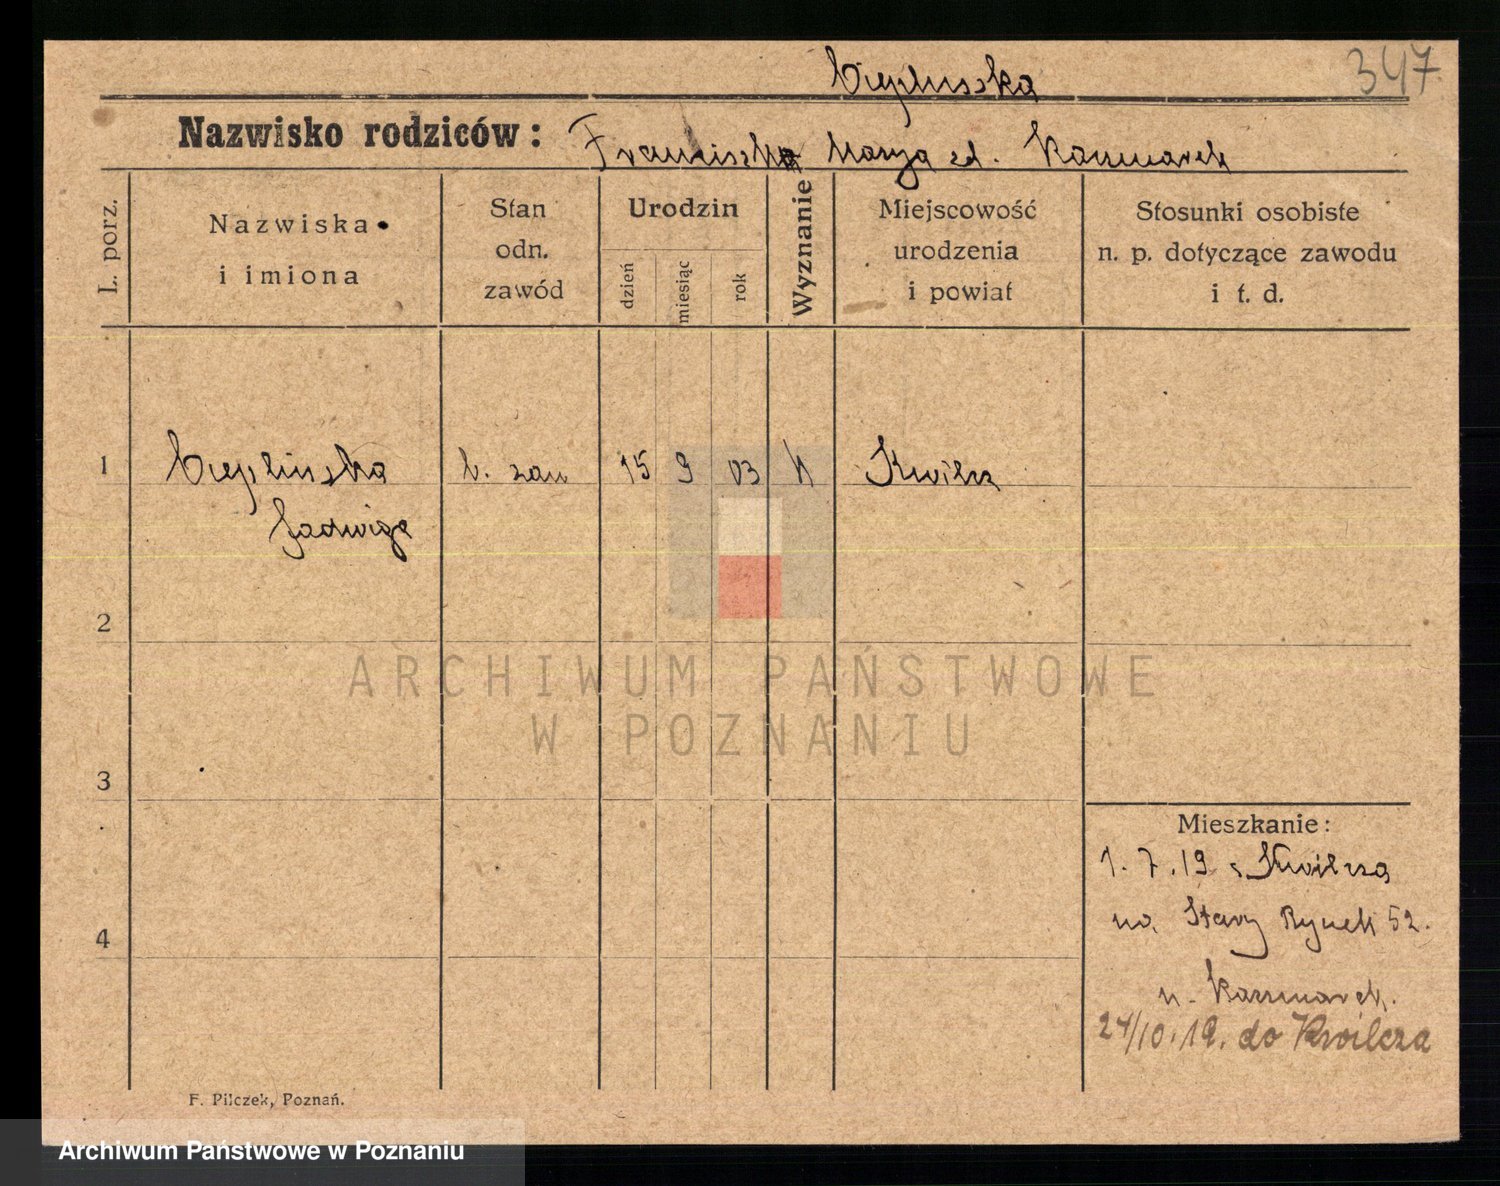 Cieplinska
347
Nazwisko rodziców: Franciszka Marya zd. Kaczmarek
L. porz.
Nazwiska
i imiona
Stan
odn.
zawód
Urodzin
dzień
miesiąc
rok
Wyznanie
Miejscowość
urodzenia
i powiat
Stosunki osobiste
n. p. dotyczące zawodu
i t. d.
1 Cieplinska b. zaw 15 9 03 k Kwilcz
Jadwiga
2
3
4
Mieszkanie:
1. 7. 19 z Kwilcza
na Stary Rynek 52.
u. Kaczmarek.
24/10. 19. do Kwilcza
F. Pilczek, Poznań.
ARCHIWUM PAŃSTWOWE
W POZNANIU
Archiwum Państwowe w Poznaniu